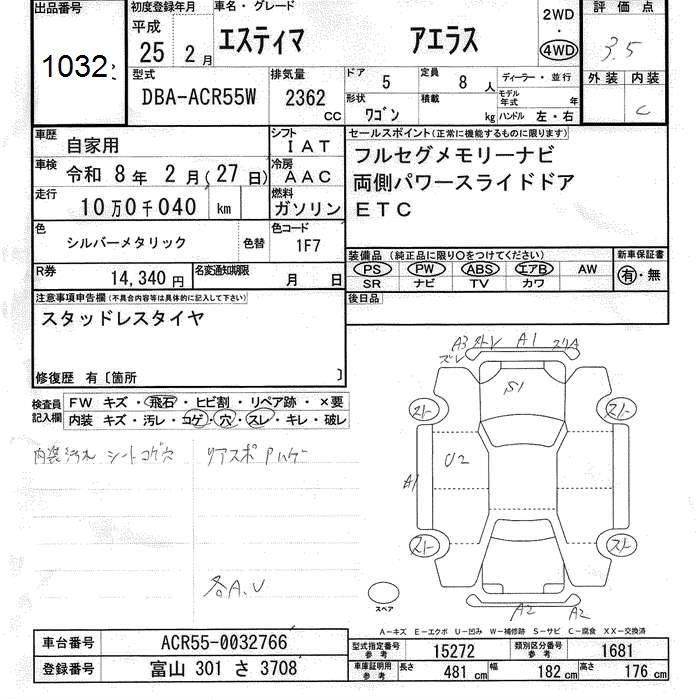 出品番号 初度登録年月 車名・グレード 2WD 評価点
1032 平成 25年 2月 エスティマ アエラス 4WD 3.5
型式 排気量 ドア 5 定員 8人 ディーラー・並行 外装 内装
DBA-ACR55W 2362cc 形状 ワゴン 積載 kg モデル年式 年 ハンドル 左・右 C
車歴 自家用 シフト IAT セールスポイント(正常に機能するものに限ります)
車検 令和 8年 2月(27日) 冷房 AAC フルセグメモリーナビ
走行 10万0千040 km 燃料 ガソリン 両側パワースライドドア
ETC
色 シルバーメタリック 色替 色コード 1F7
装備品(純正品に限り○をつけてください) 新車保証書
PS PW ABS エアB AW 有・無
SR ナビ TV カワ
R券 14,340円 名変通知期限 月 日
後日品
注意事項申告欄(不具合内容等は具体的に記入して下さい)
スタッドレスタイヤ
修復歴 有〔箇所 〕
検査員記入欄 FW キズ・飛石・ヒビ割・リペア跡・×要
内装 キズ・汚レ・コゲ・穴・スレ・キレ・破レ
内装汚れ シートコゲ穴 リアスポPハゲ
各A、U
A3 ズレ A1 スリA
S1
スト スト
U2
A1
スト スト
スペア
A2 A2
A-キズ E-エクボ U-凹み W-補修跡 S-サビ C-腐食 XX-交換済
車台番号 ACR55-0032766 型式指定番号 参考 15272 類別区分番号 参考 1681
登録番号 富山 301 さ 3708 車庫証明用 参考 長さ 481cm 幅 182cm 高さ 176cm